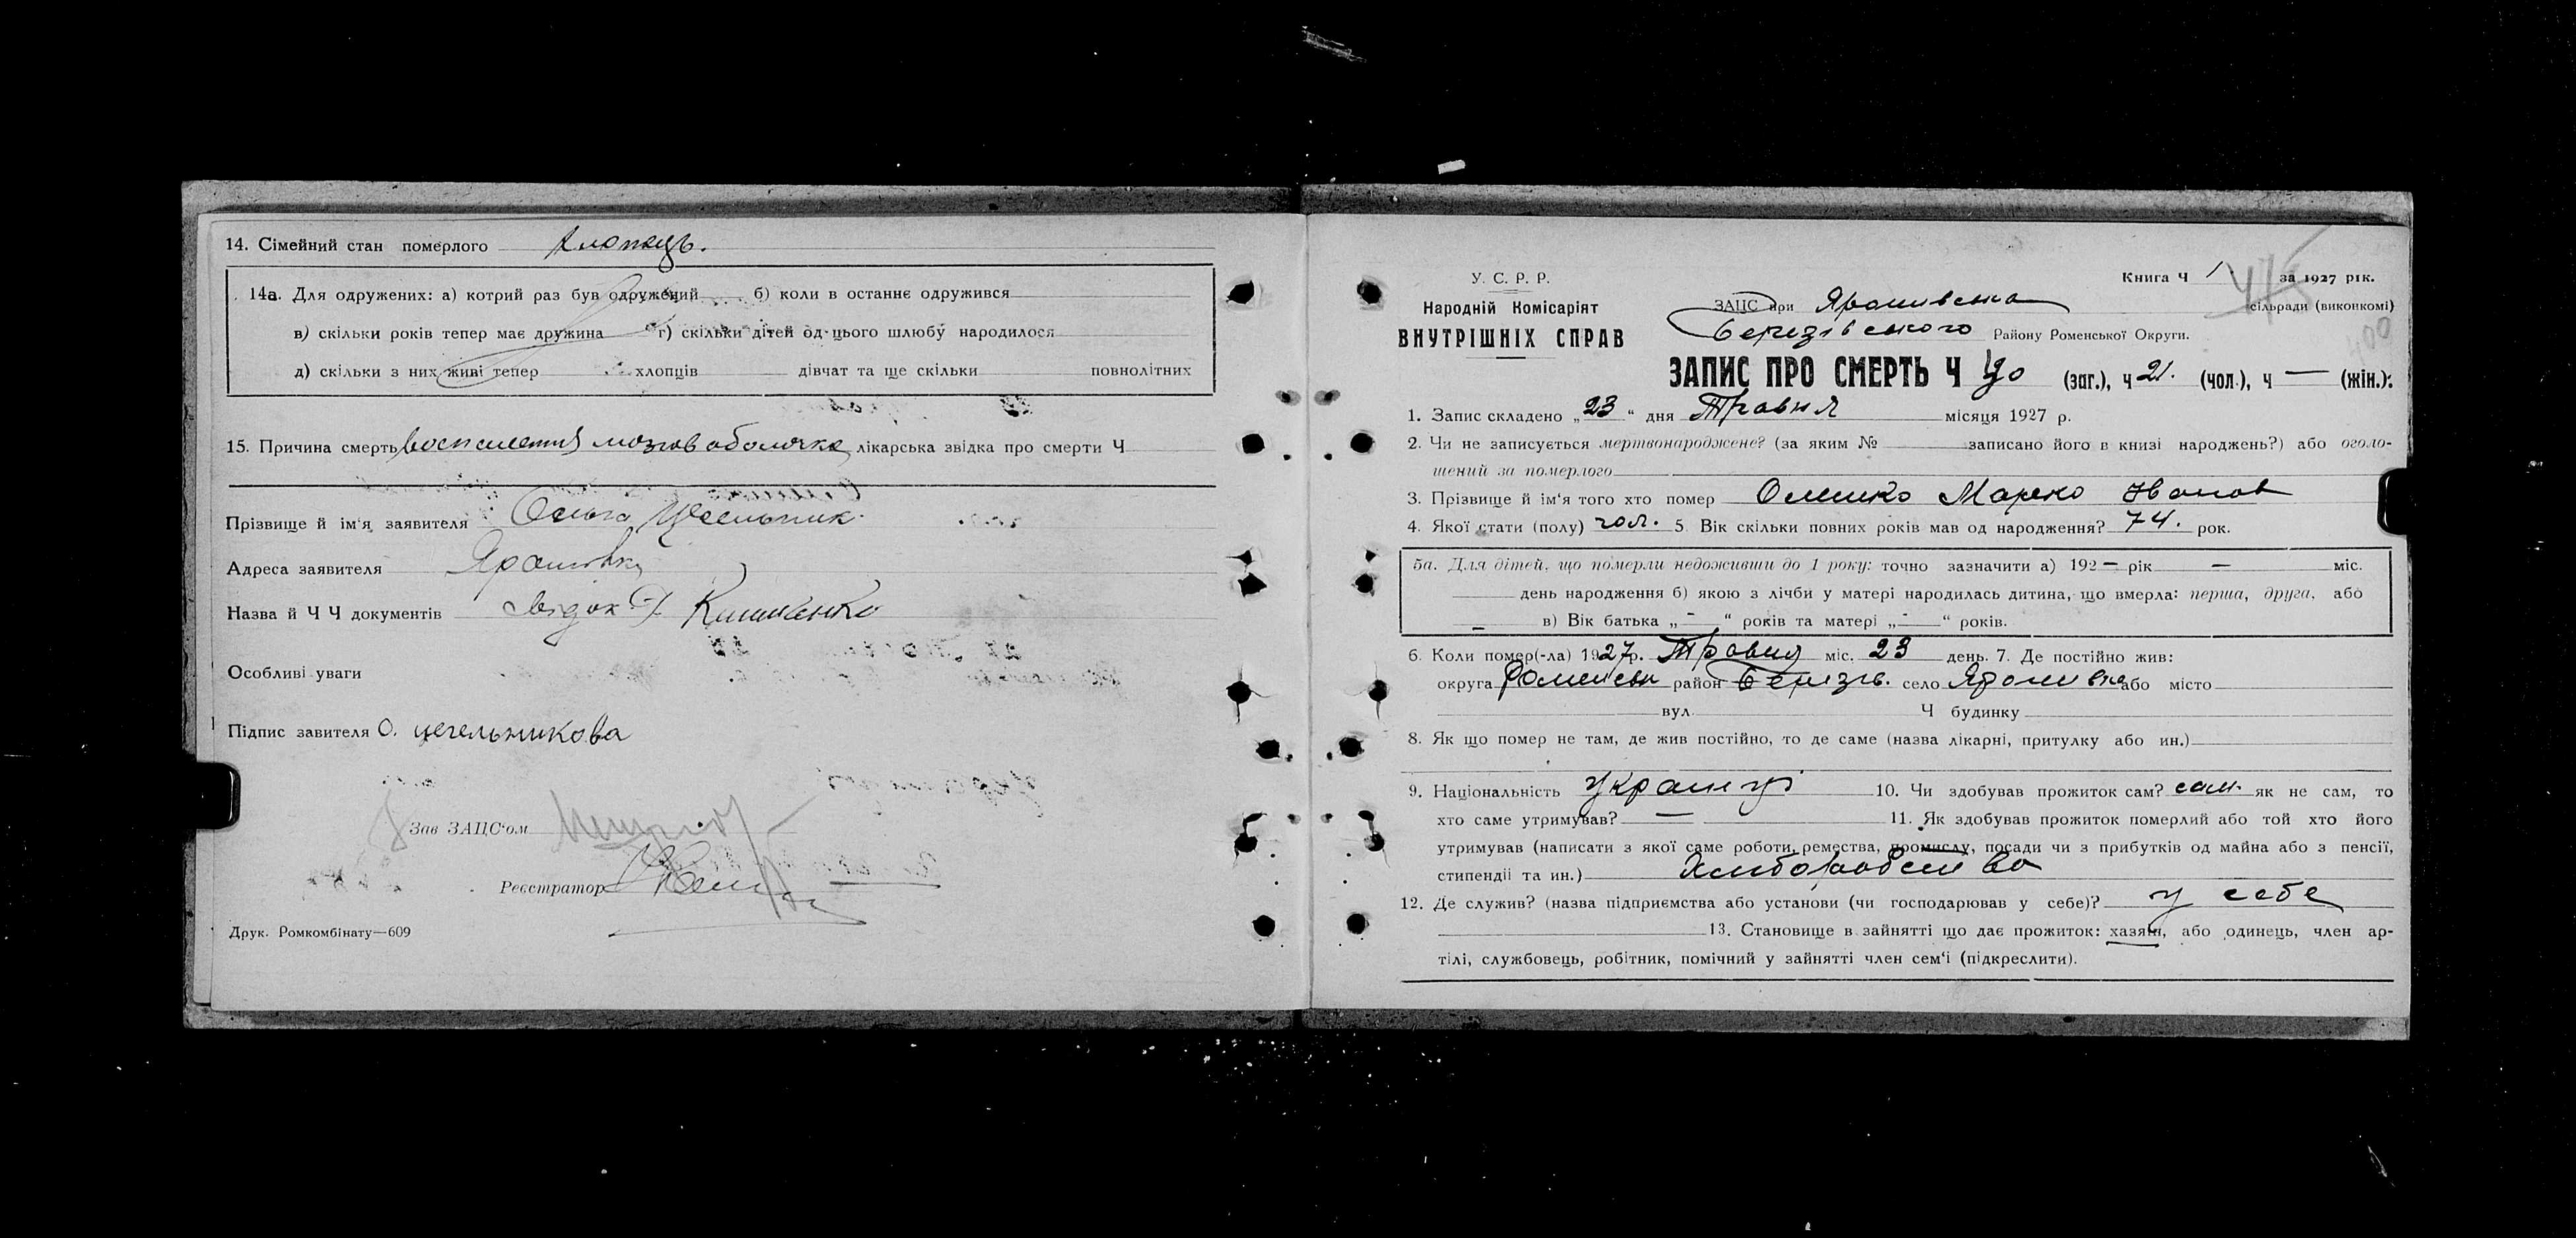 14. Сімейний стан померлого хлопець.
14а. Для одружених: а) котрий раз був одружений б) коли в останнє одружився
в) скільки років тепер має дружина г) скільки дітей од цього шлюбу народилося
д) скільки з них живі тепер хлопців дівчат та ще скільки повнолітних
15. Причина смерть воспаления мозгов оболочка лікарська звідка про смерти Ч
Прізвище й ім'я заявителя Ольга Цегельник
Адреса заявителя Ярошівка
Назва й Ч Ч документів свідок
Особливі уваги
Підпис завителя О. цегельникова
Зав ЗАЦС'ом
Реєстратор
Друк. Ромкомбінату—609
У. С. Р. Р.
Народній Комісаріят
ВНУТРІШНІХ СПРАВ
Книга Ч 1 за 1927 рік.
ЗАЦС при Ярошивська сільради (виконкомі)
400
Березівського Району Роменської Округи.
ЗАПИС ПРО СМЕРТЬ Ч 40 (заг.), ч 21. (чол.), ч — (жін.):
1. Запис складено „23“ дня Травня місяця 1927 р.
2. Чи не записується мертвонароджене? (за яким № записано його в книзі народжень?) або оголо-
шений за померлого
3. Прізвище й ім'я того хто помер Олешко Марко Иванов
4. Якої стати (полу) чол. 5. Вік скільки повних років мав од народження? 74. рок.
5а. Для дітей, що померли недоживши до 1 року: точно зазначити а) 192 — рік — міс.
день народження б) якою з лічби у матері народилась дитина, що вмерла: перша, друга, або
— в) Вік батька „—“ років та матері „—“ років.
6. Коли помер(-ла) 1927р. Травня міс. 23 день. 7. Де постійно жив:
округа Роменськ район Березів. село Ярошивка або місто
вул. Ч будинку
8. Як що помер не там, де жив постійно, то де саме (назва лікарні, притулку або ин.)
9. Національність Украінці 10. Чи здобував прожиток сам? сам. як не сам, то
хто саме утримував? — 11. Як здобував прожиток померлий або той хто його
утримував (написати з якої саме роботи, ремества, промислу, посади чи з прибутків од майна або з пенсії,
стипендії та ин.) Хлиборобство
12. Де служив? (назва підприємства або установи (чи господарював у себе)? у себе
13. Становище в зайнятті що дає прожиток: хазяїн, або одинець, член ар-
тілі, службовець, робітник, помічний у зайнятті член сем'ї (підкреслити).